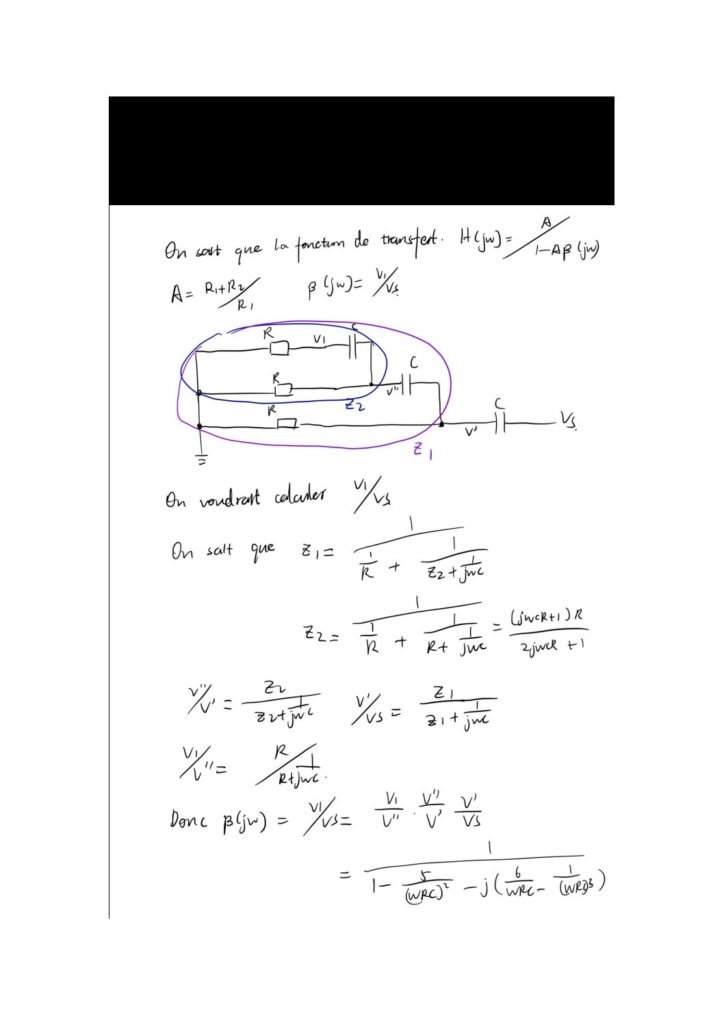 On sait que la fonction de transfert. H(jw)= A/1-Aβ(jw)
A= R1+R2/R1 β(jw)= V1/Vs
R V1 C
R V" C
Z2
R V' C Vs
Z1
On voudrait calculer V1/Vs
On sait que Z1= 1/(1/R + 1/(Z2+1/jwc))
Z2= 1/(1/R + 1/(R+1/jwc)) = (jwcR+1)R/(2jwcR+1)
V"/V' = Z2/(Z2+1/jwc) V'/Vs = Z1/(Z1+1/jwc)
V1/V" = R/(R+1/jwc).
Donc β(jw) = V1/Vs = V1/V" · V"/V' V'/Vs
= 1/(1- 5/(WRC)² -j(6/WRC - 1/(WRC)3))